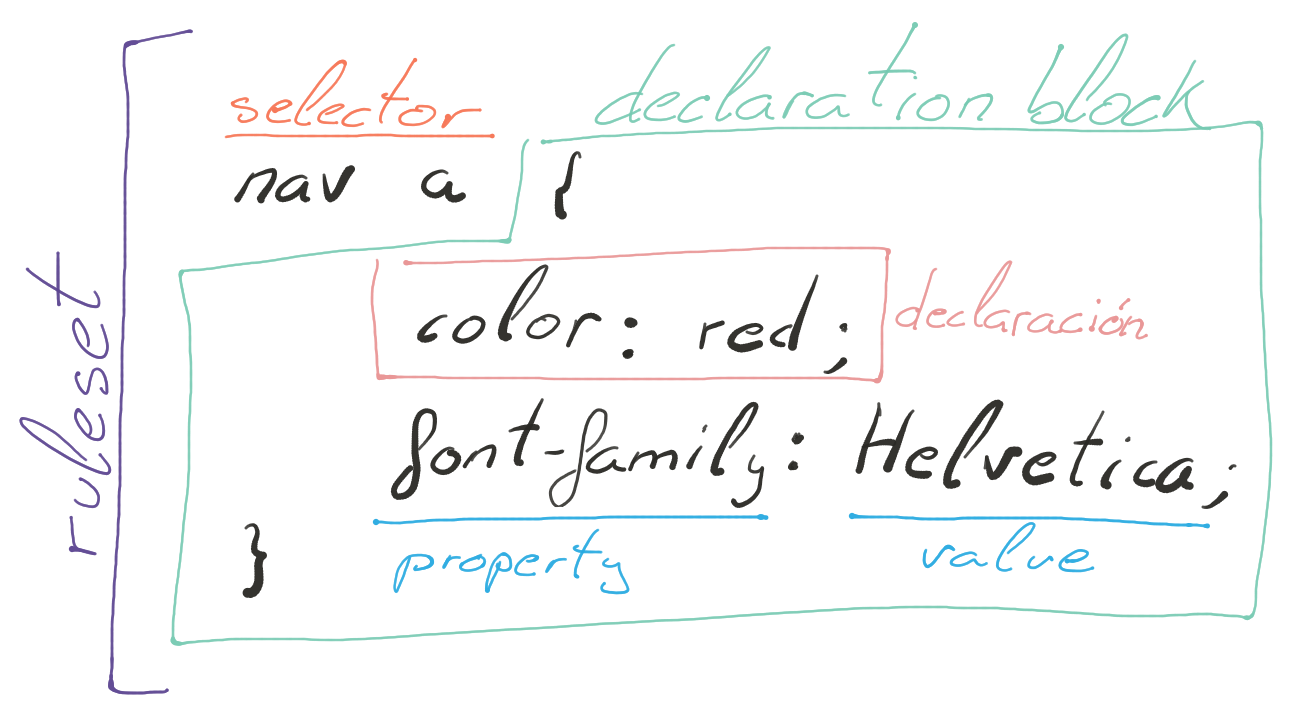 selector
declaration block
nav a {
color: red;
declaración
font-family: Helvetica;
property
value
}
ruleset